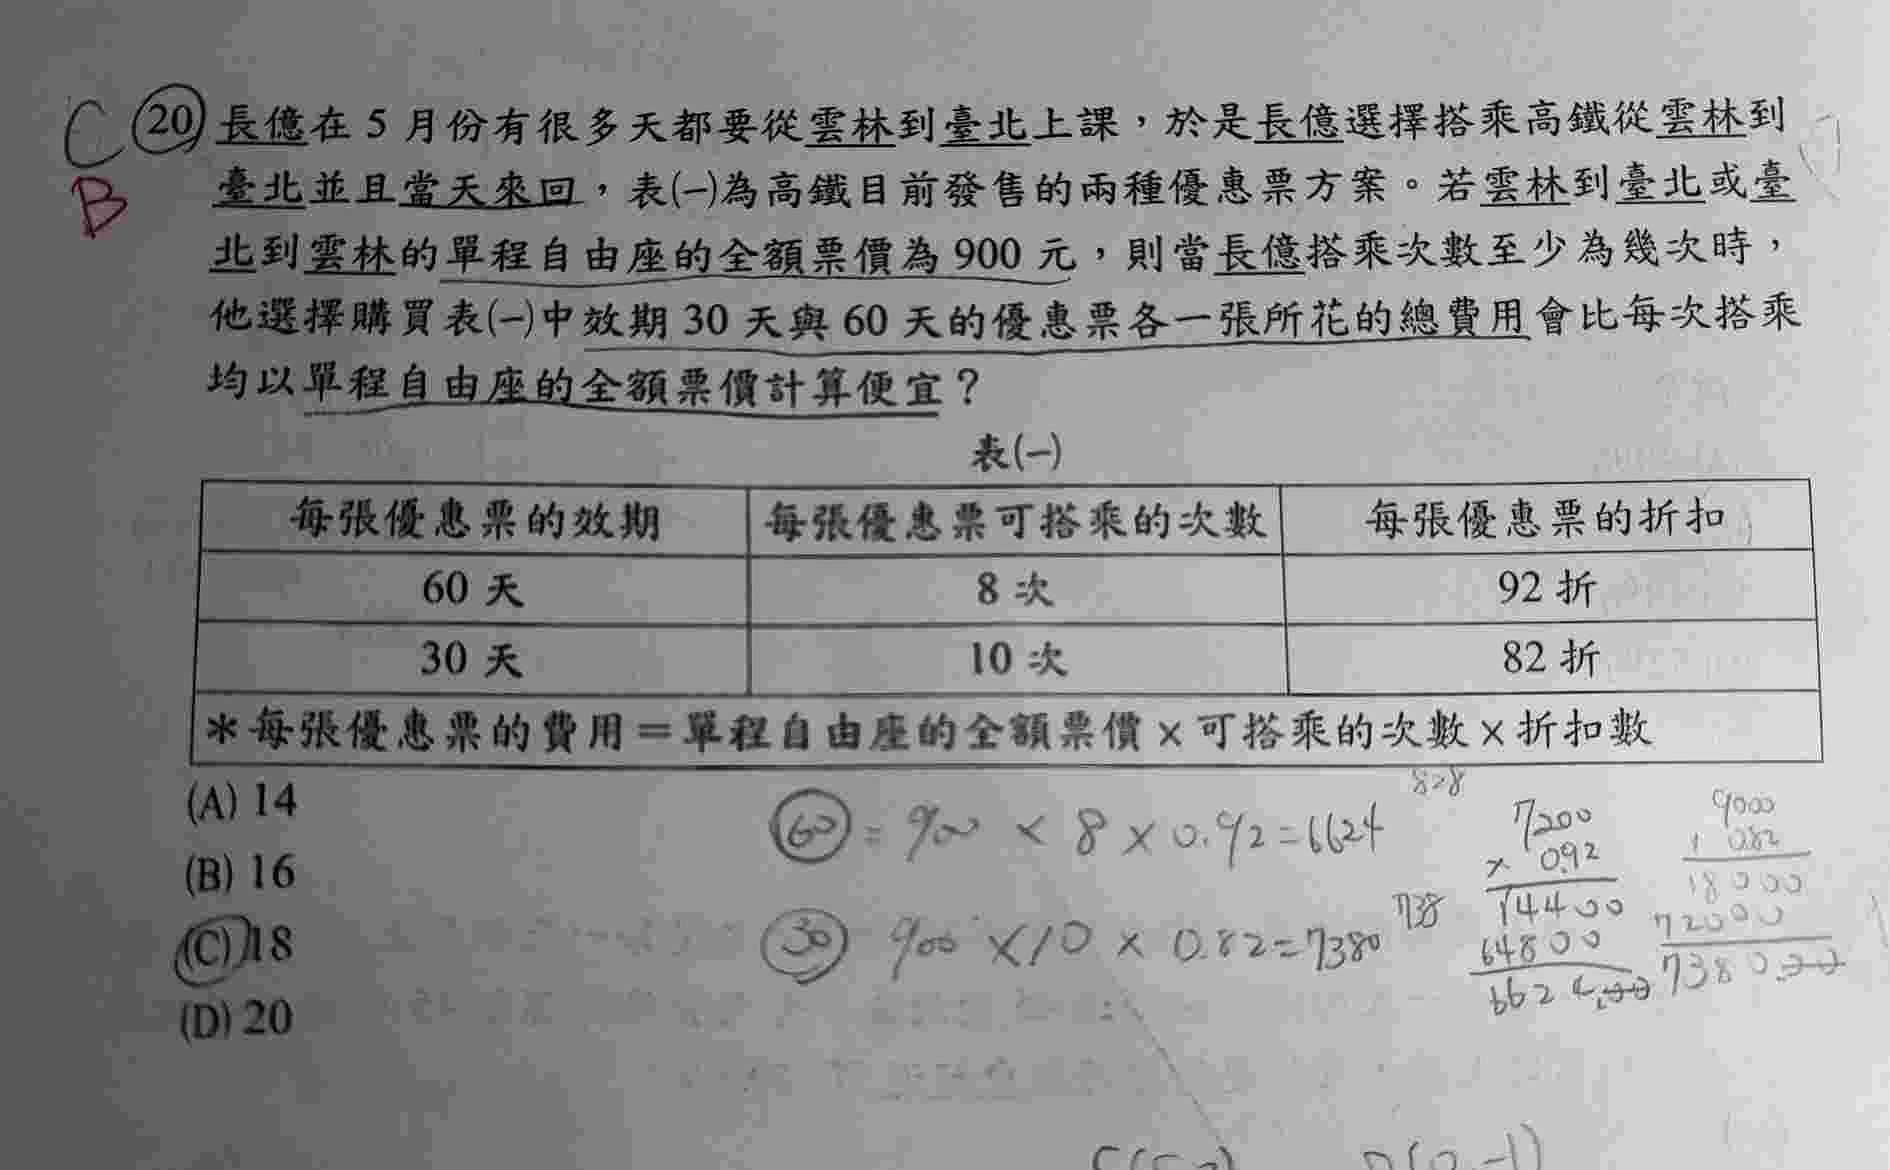 C 20 長億在 5 月份有很多天都要從雲林到臺北上課，於是長億選擇搭乘高鐵從雲林到
B 臺北並且當天來回，表(一)為高鐵目前發售的兩種優惠票方案。若雲林到臺北或臺
北到雲林的單程自由座的全額票價為 900 元，則當長億搭乘次數至少為幾次時，
他選擇購買表(一)中效期 30 天與 60 天的優惠票各一張所花的總費用會比每次搭乘
均以單程自由座的全額票價計算便宜？
表(一)
每張優惠票的效期 每張優惠票可搭乘的次數 每張優惠票的折扣
60 天 8 次 92 折
30 天 10 次 82 折
＊每張優惠票的費用＝單程自由座的全額票價×可搭乘的次數×折扣數
(A) 14
(B) 16
(C) 18
(D) 20
60 = 900 × 8 × 0.92 = 6624
30 900 × 10 × 0.82 = 7380
738
7200
× 0.92
14400
64800
6624.00
9000
0.82
18000
72000
7380.00